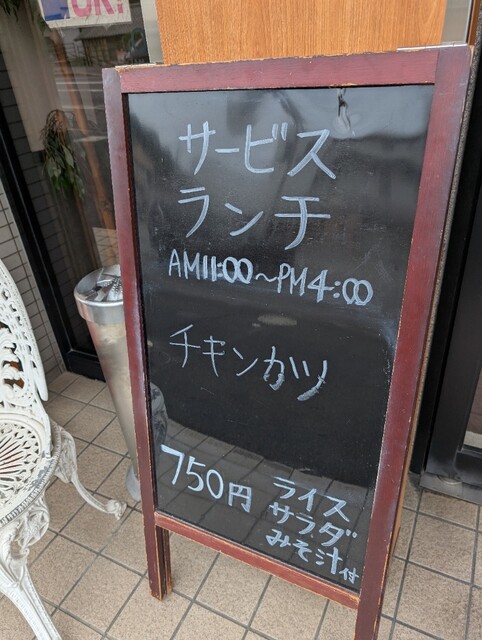 OK!
サービス
ランチ
AM11:00〜PM4:00
チギンカツ
750円
ライス
サラダ
みそ汁付